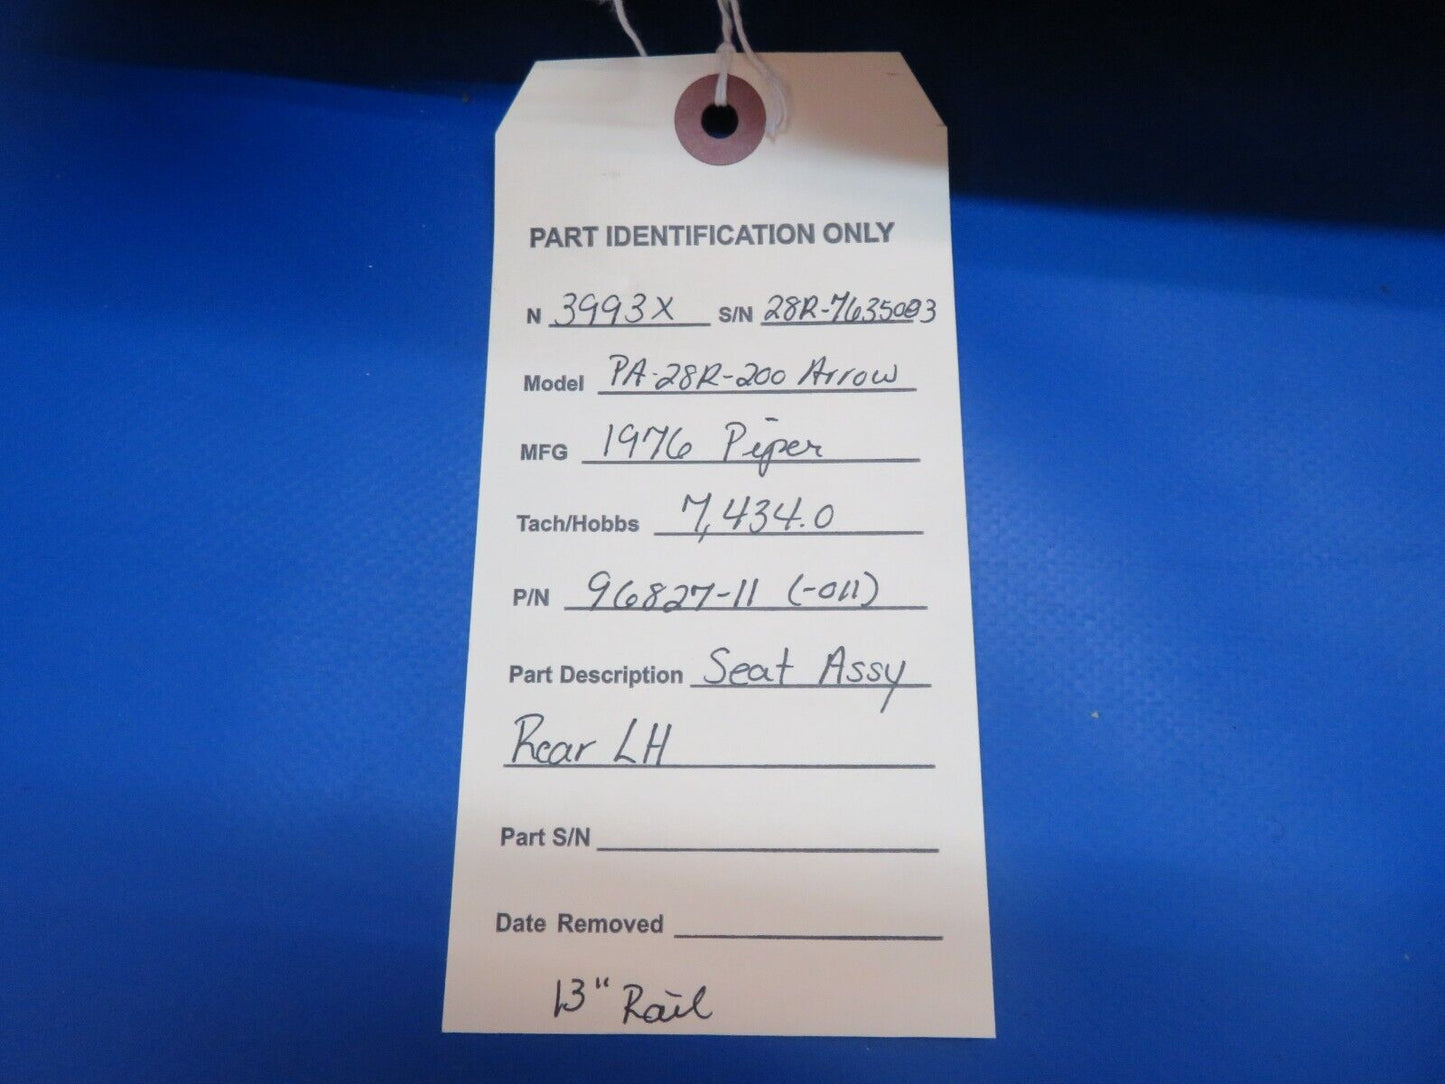 PART IDENTIFICATION ONLY
N 3993X S/N 28R-7635083
Model PA-28R-200 Arrow
MFG 1976 Piper
Tach/Hobbs 7,434.0
P/N 96827-11 (-011)
Part Description Seat Assy
Rear LH
Part S/N
Date Removed
13" Rail